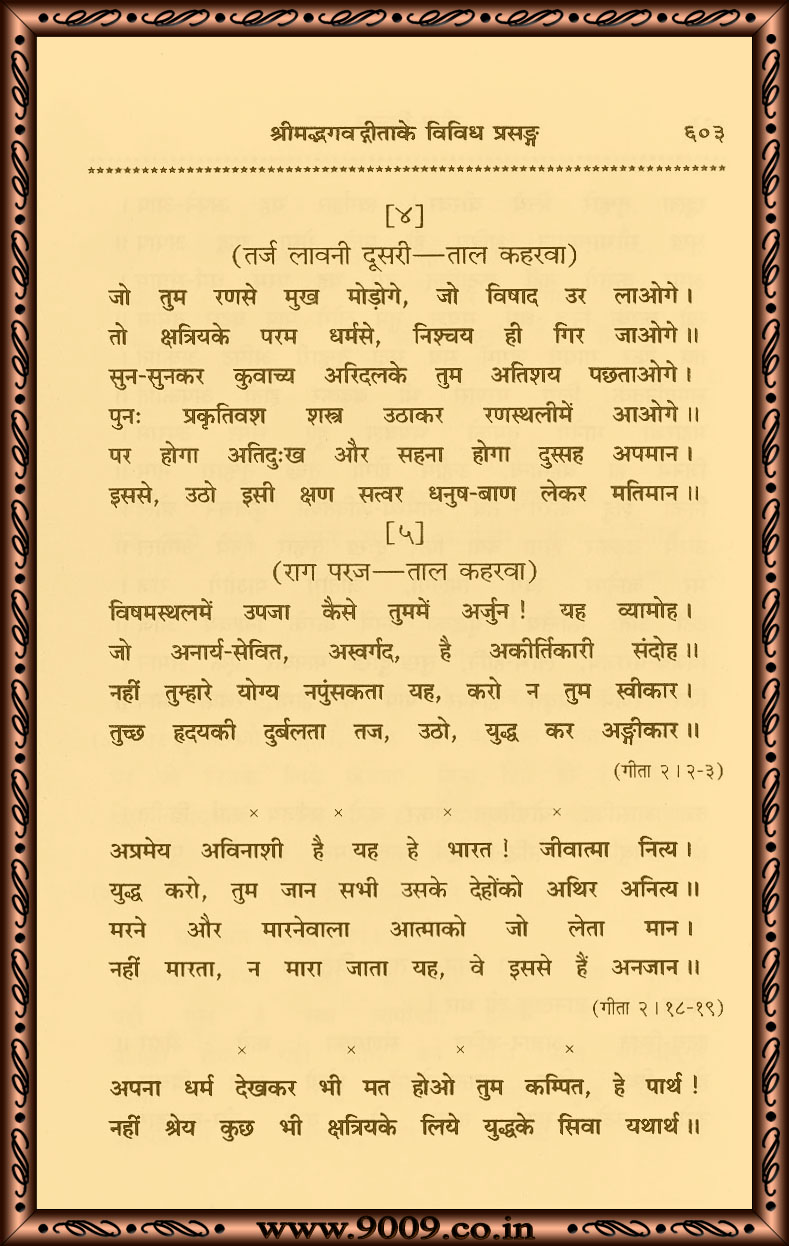 श्रीमद्भगवद्गीताके विविध प्रसङ्ग ६०३
[४]
(तर्ज लावनी दूसरी—ताल कहरवा)
जो तुम रणसे मुख मोड़ोगे, जो विषाद उर लाओगे।
तो क्षत्रियके परम धर्मसे, निश्चय ही गिर जाओगे॥
सुन-सुनकर कुवाच्य अरिदलके तुम अतिशय पछताओगे।
पुनः प्रकृतिवश शस्त्र उठाकर रणस्थलीमें आओगे॥
पर होगा अतिदुःख और सहना होगा दुस्सह अपमान।
इससे, उठो इसी क्षण सत्वर धनुष-बाण लेकर मतिमान॥
[५]
(राग परज—ताल कहरवा)
विषमस्थलमें उपजा कैसे तुममें अर्जुन! यह व्यामोह।
जो अनार्य-सेवित, अस्वर्गद, है अकीर्तिकारी संदोह॥
नहीं तुम्हारे योग्य नपुंसकता यह, करो न तुम स्वीकार।
तुच्छ हृदयकी दुर्बलता तज, उठो, युद्ध कर अङ्गीकार॥
(गीता २। २-३)
× × × ×
अप्रमेय अविनाशी है यह हे भारत! जीवात्मा नित्य।
युद्ध करो, तुम जान सभी उसके देहोंको अथिर अनित्य॥
मरने और मारनेवाला आत्माको जो लेता मान।
नहीं मारता, न मारा जाता यह, वे इससे हैं अनजान॥
(गीता २। १८-१९)
× × × ×
अपना धर्म देखकर भी मत होओ तुम कम्पित, हे पार्थ!
नहीं श्रेय कुछ भी क्षत्रियके लिये युद्धके सिवा यथार्थ॥
www.9009.co.in